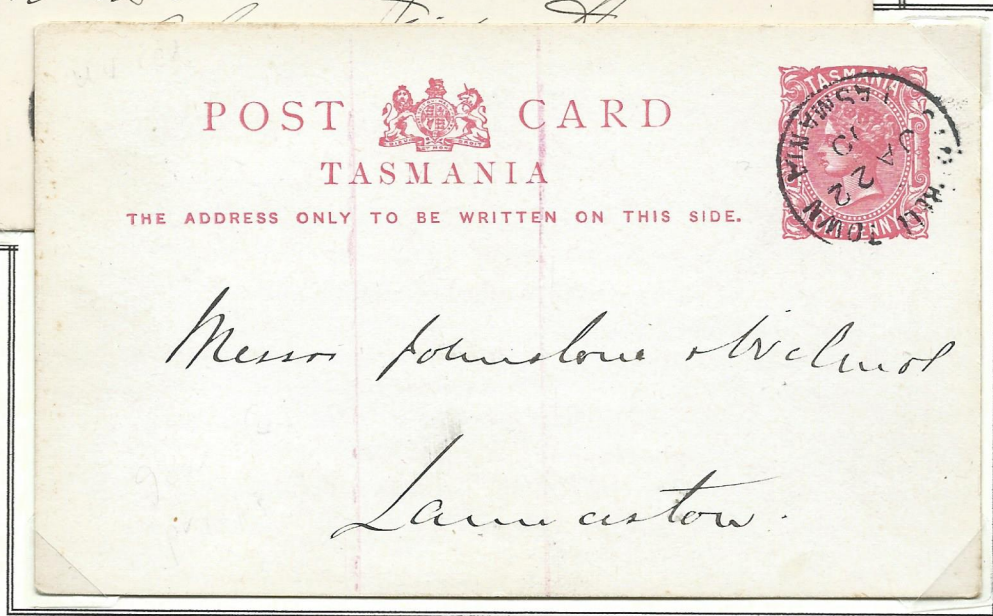 POST CARD
TASMANIA
THE ADDRESS ONLY TO BE WRITTEN ON THIS SIDE.
TASMANIA
PENNY
TOWN
TASMANIA
JA 22
10
Messrs Johnstone & Wilmot
Launceston.